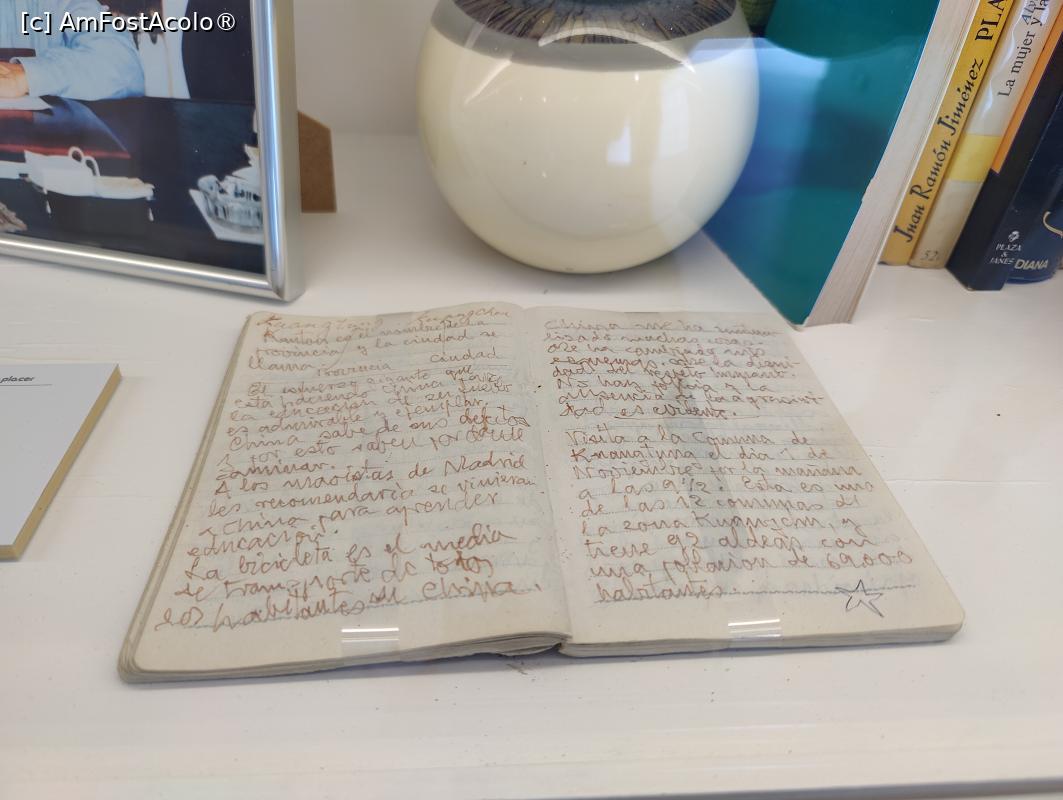 [c] AmFostAcolo®
placer
Juan Ramón Jiménez PLA
52
La mujer y la
PLAZA
& JANES
DIANA
Kuangtung Kuangchou
Kantón es el nombre de la
provincia y la ciudad se
llama provincia ciudad
El esfuerzo gigante que
está haciendo China para
la educación de su pueblo
es admirable y ejemplar.
China sabe de sus defectos
y por esto saben por donde
caminar.
A los maoistas de Madrid
les recomendaría se vinieran
a China para aprender
educación.
La bicicleta es el media
de transporte de todos
los habitantes en China.
China me ha
muchas cosas.
me ha cambiado mis
esquemas sobre la digni-
dad del respeto humano.
No hay policía y la
ausencia de
dad es evidente.
Visita a la Comuna de
el día 1 de
Noviembre por la mañana
a las 9 1/2. Esta es una
de las 12 comunas de
la zona y
tiene 92 aldeas con
una población de 69.000
habitantes.